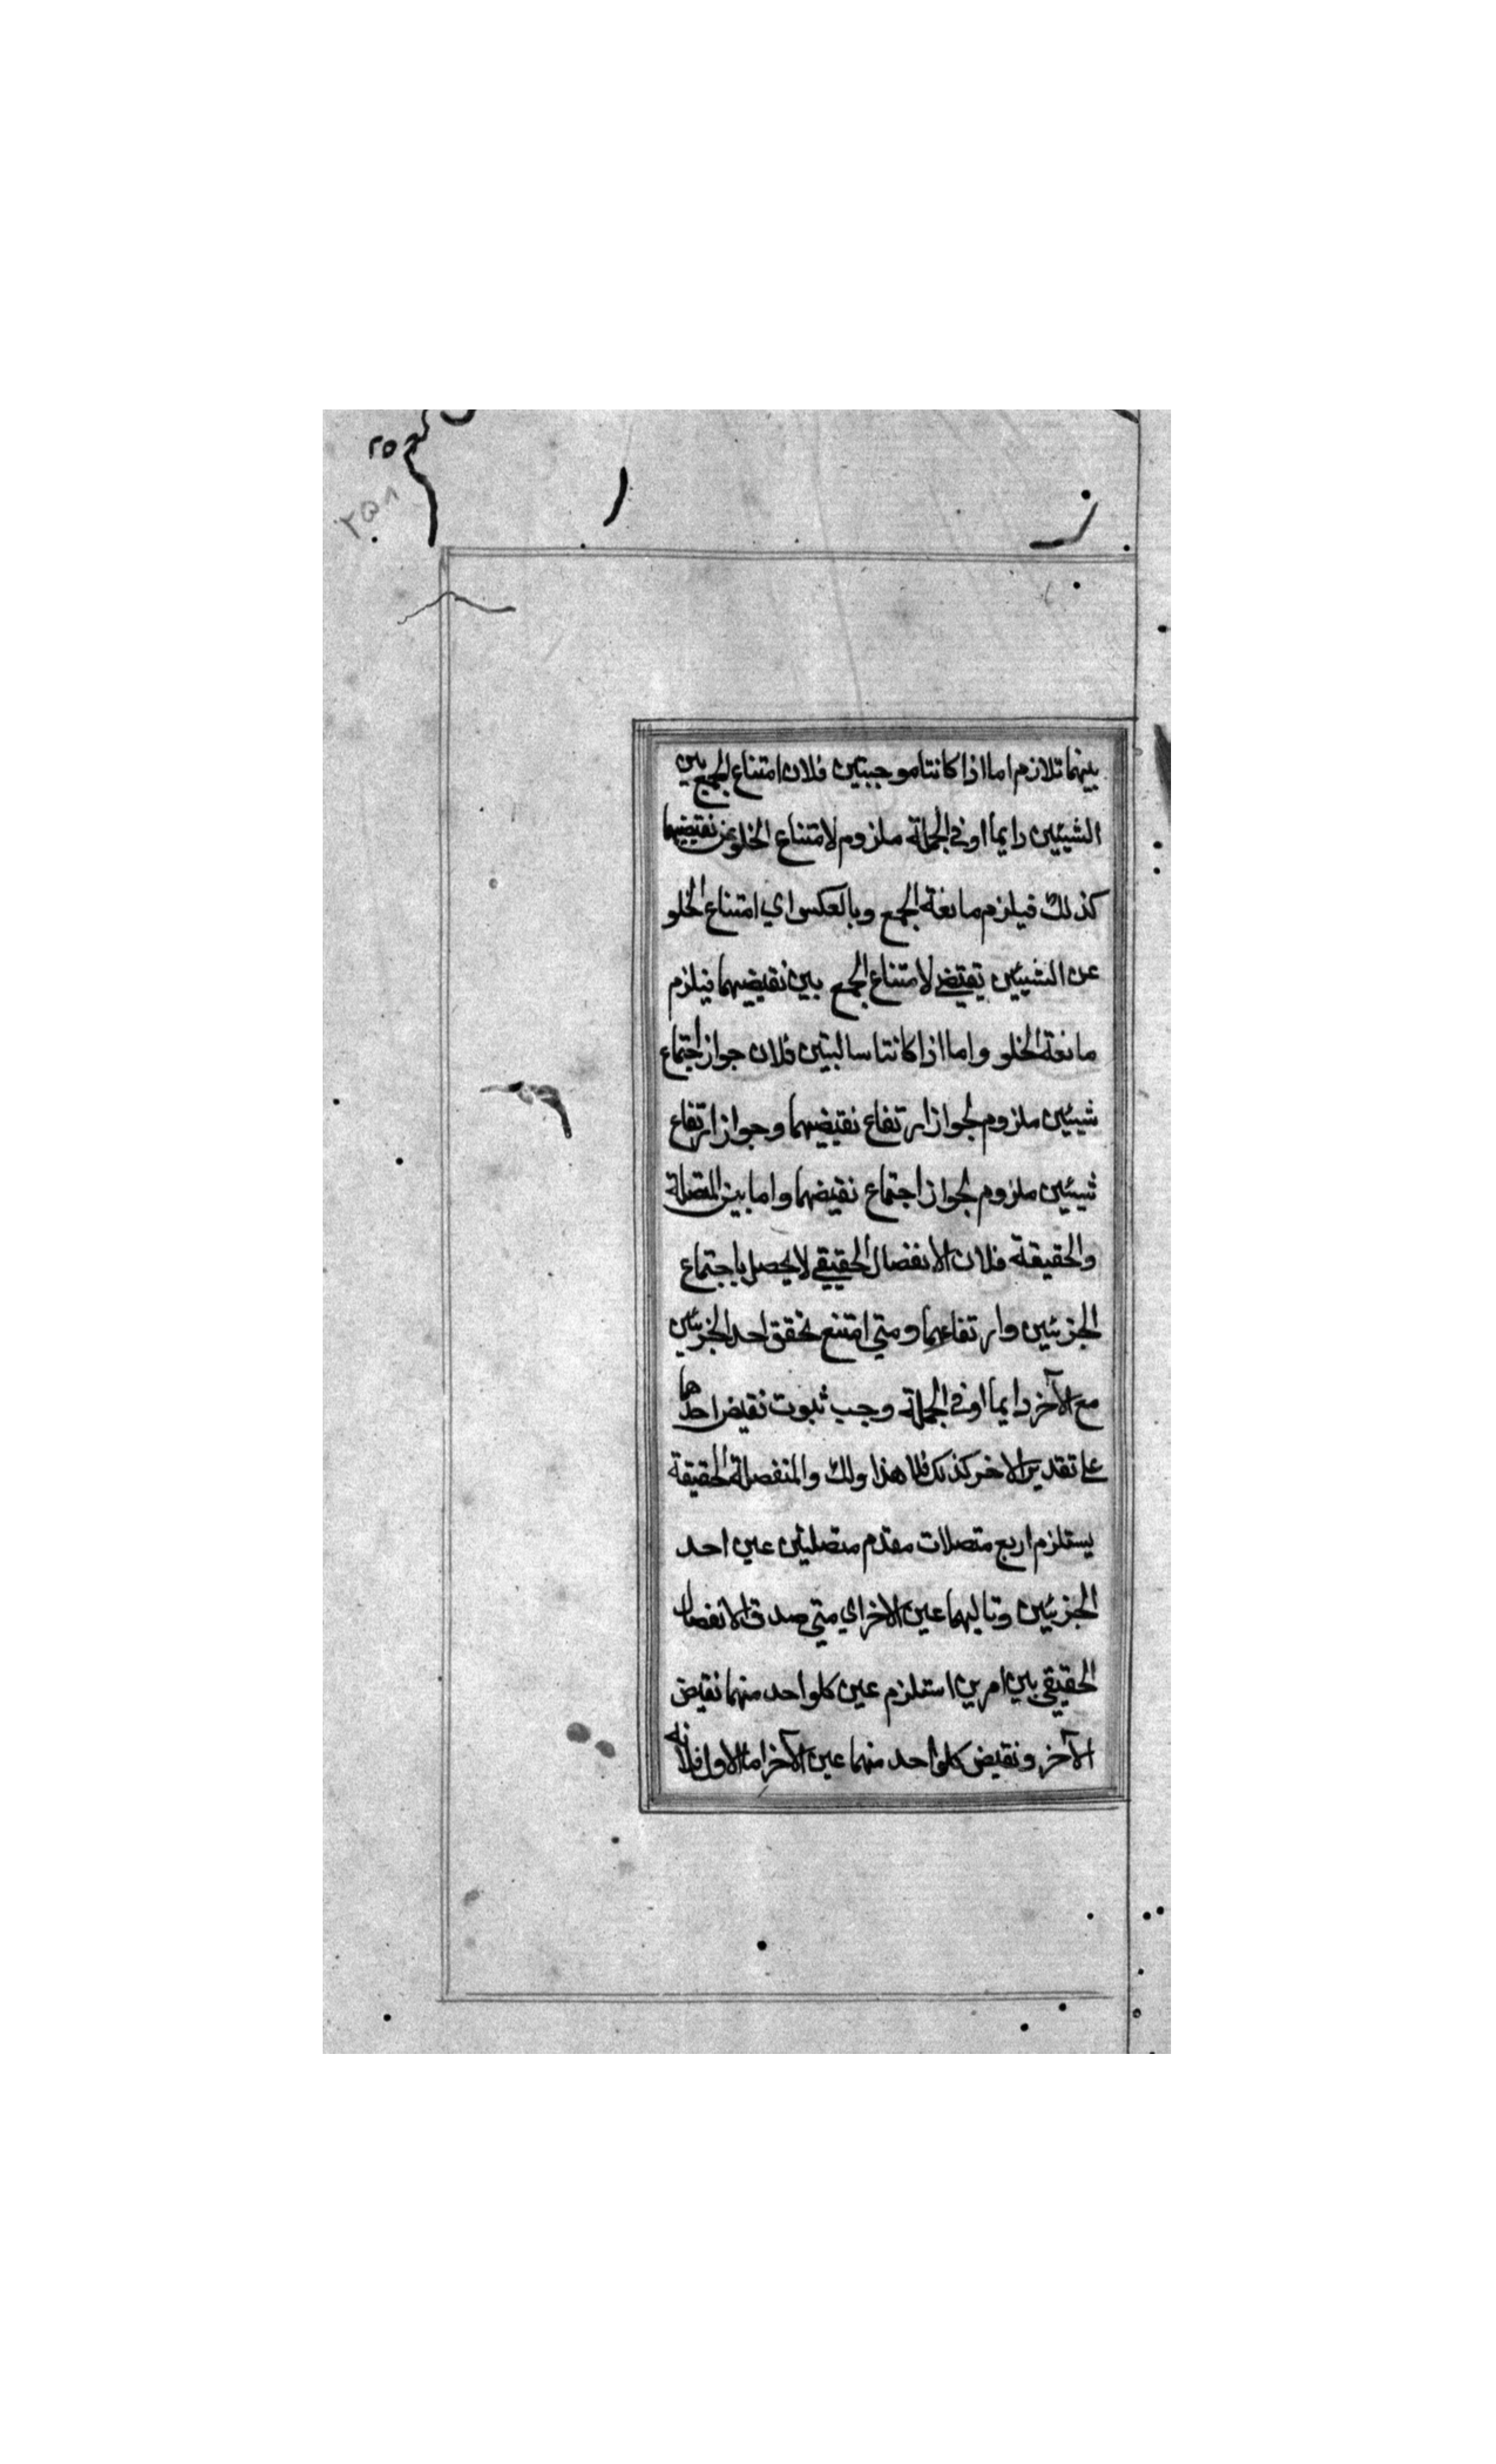 ٢٥٨
٢٥٨
بينهما تلازم اما اذا كانتا موجبتين فلان امتناع الجمع بين
الشيئين دايما او في الجملة ملزوم لامتناع الخلو عن نقيضيهما
كذلك فيلزم مانعة الجمع وبالعكس اي امتناع الخلو
عن الشيئين يقتضي لامتناع الجمع بين نقيضيهما فيلزم
مانعة الخلو واما اذا كانتا سالبتين فلان جواز اجتماع
شيئين ملزوم لجواز ارتفاع نقيضيهما وجواز ارتفاع
شيئين ملزوم لجواز اجتماع نقيضهما واما بين المتصلة
والحقيقة فلان الانفصال الحقيقي لا يحصل باجتماع
الجزئين وارتفاعهما ومتي امتنع تحقق احد الجزئين
مع الآخر دايما او في الجملة وجب ثبوت نقيض احدهما
علي تقدير الاخر كذلك فلما هذا ولك والمنفصلة الحقيقة
يستلزم اربع متصلات مقدم متصلتين عين احد
الجزئين وتاليهما عين الاخر اي متي صدق الانفصال
الحقيقي بين امرين استلزم عين كلواحد منهما نقيض
الآخر ونقيض كلواحد منهما عين الآخر اما الاول فلانه